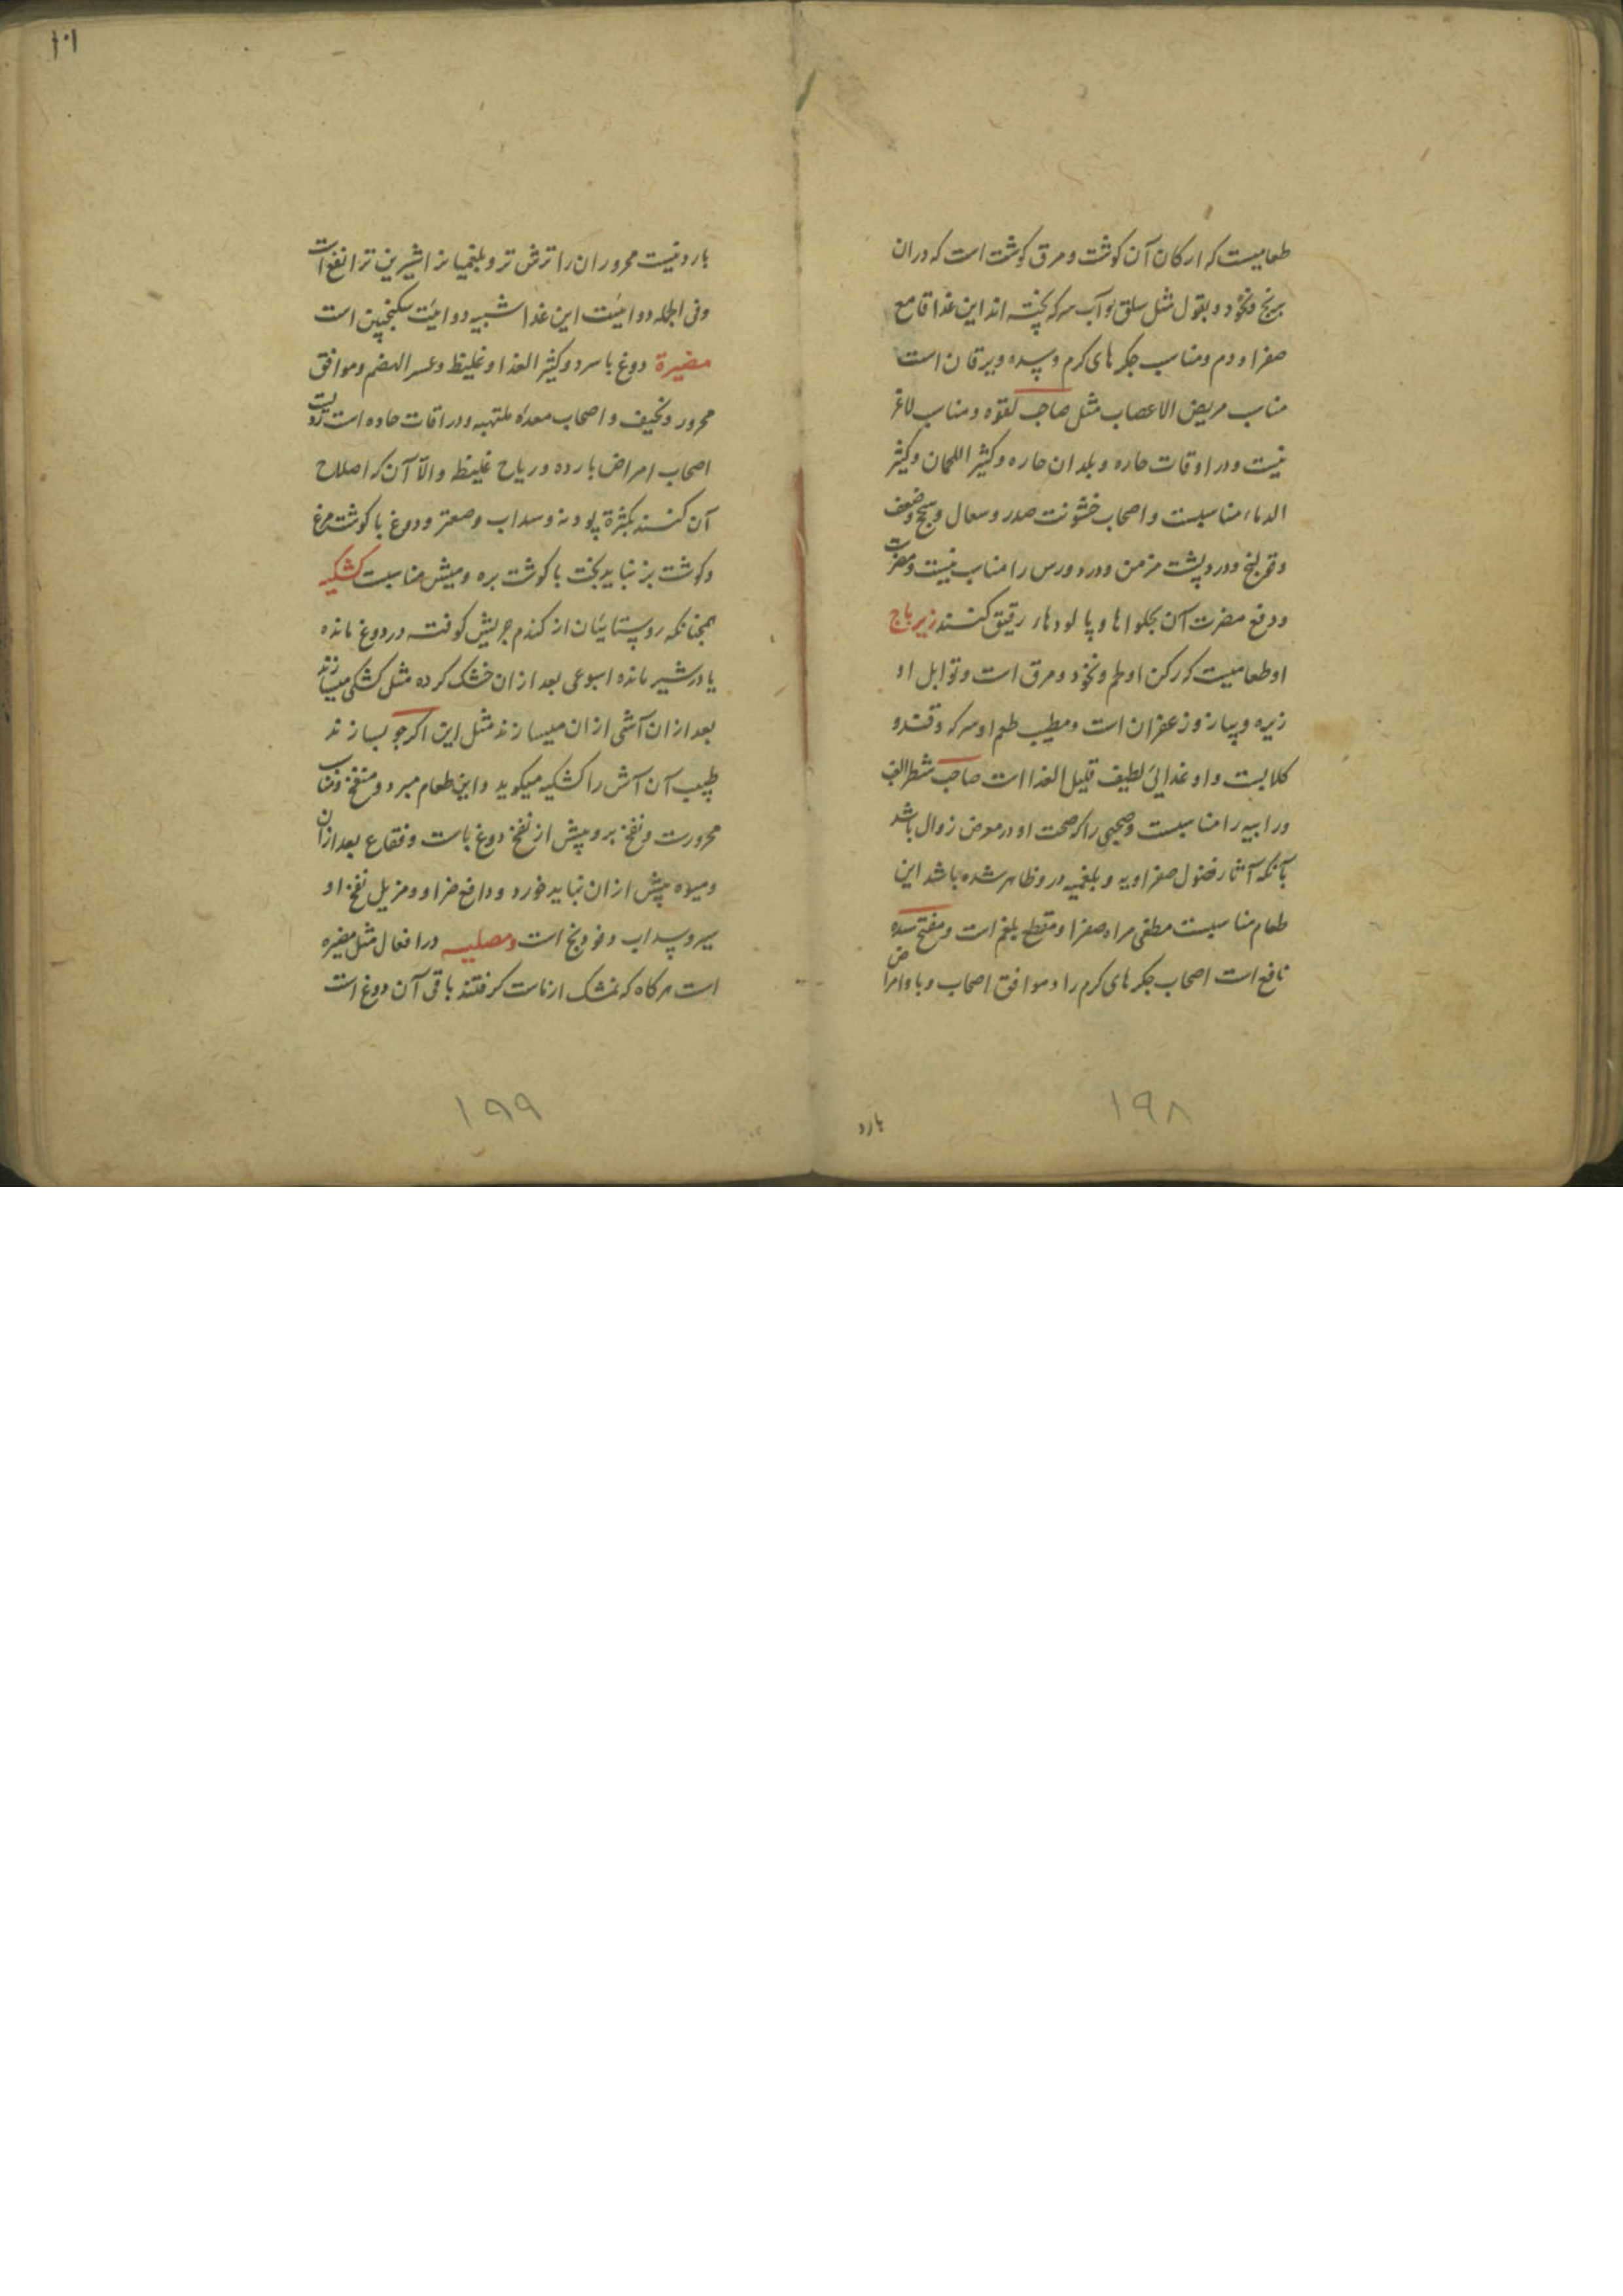 طعامیست که ارکان آن کوشت و مرق کوشت است که دران
برنج و نخود و بقول مثل سلق و آب سرکه پخته اند این غذا قامع
صفرا و دم و مناسب جکرهای کرم و سده و یرقان است
مناسب مریض الاعصاب مثل صاحب لقوه و مناسب لاغر
نیست و در اوقات حاره و بلدان حاره و کثیر اللحمان و کثیر
الدماء مناسبست و اصحاب خشونت صدر و سعال و سحج و ضعف
و درد پشت مزمن و درد ورس را مناسب نیست و مضرت
و دفع مضرت آن بحلواها و پالودهار رقیق کنند زیرباج
او طعامیست که رکن او لحم و نخود و مرق است و توابل او
زیره و پیاز و زعفران است و مطیب طعم او سرکه و قند و
کلابست و او غدائی لطیف قلیل الغذا است صاحب شطر الغب
ورابیه را مناسبست و صحیحی را که صحت او در معرض زوال باشد
بآنکه آثار فضول صفراویه و بلغمیه در و ظاهر شده باشد این
طعام مناسبست مطفی مراد صفرا و مقطع بلغم است و مفتح سده
نافع است اصحاب جکرهای کرم را و موافق اصحاب وبا و امراض
بارد
۱۹۸
۱۰۱
بارد نیست محروران را ترش تر و بلغمیانرا شیرین تر انفع است
و فی الجمله دوائیت این غذا شبیه دوائیت سکنجبین است
مضیرة دوغ با سرد و کثیر الغذا و غلیظ و عسر الهضم و موافق
محرور و نحیف و اصحاب معدهٔ ملتهبه و در اقات حاده است
اصحاب امراض بارده و ریاح غلیظ و الّا آن که اصلاح
آن کنند بکثرة پودنه و سداب و صعتر و دوغ با کوشت مرغ
و کوشت بز نباید پخت با کوشت بره و میش مناسبست کشکیه
همچنانکه روستائیان از کندم جریش کوفته در دوغ مانده
یا در شیر مانده اسبوعی بعد ازان خشک کرده مثل کشکی میسازند
بعد ازان آشی ازان میسازند مثل این اکر جو بسازند
طبیب آن آش را کشکیه میکوید و این طعام مبرد و منفخ و مناسب
محرورت و نفخ برو بیش از نفخ دوغ باست و فقاع بعد ازان
و میوه پیش ازان نباید خورد و دافع ضرا و و مزیل نفخ او
سیر و سداب و فودنج است و مصلیه در افعال مثل مضیره
است هرکاه که تمشک از ماست کرفتند باقی آن دوغ است
۱۹۹